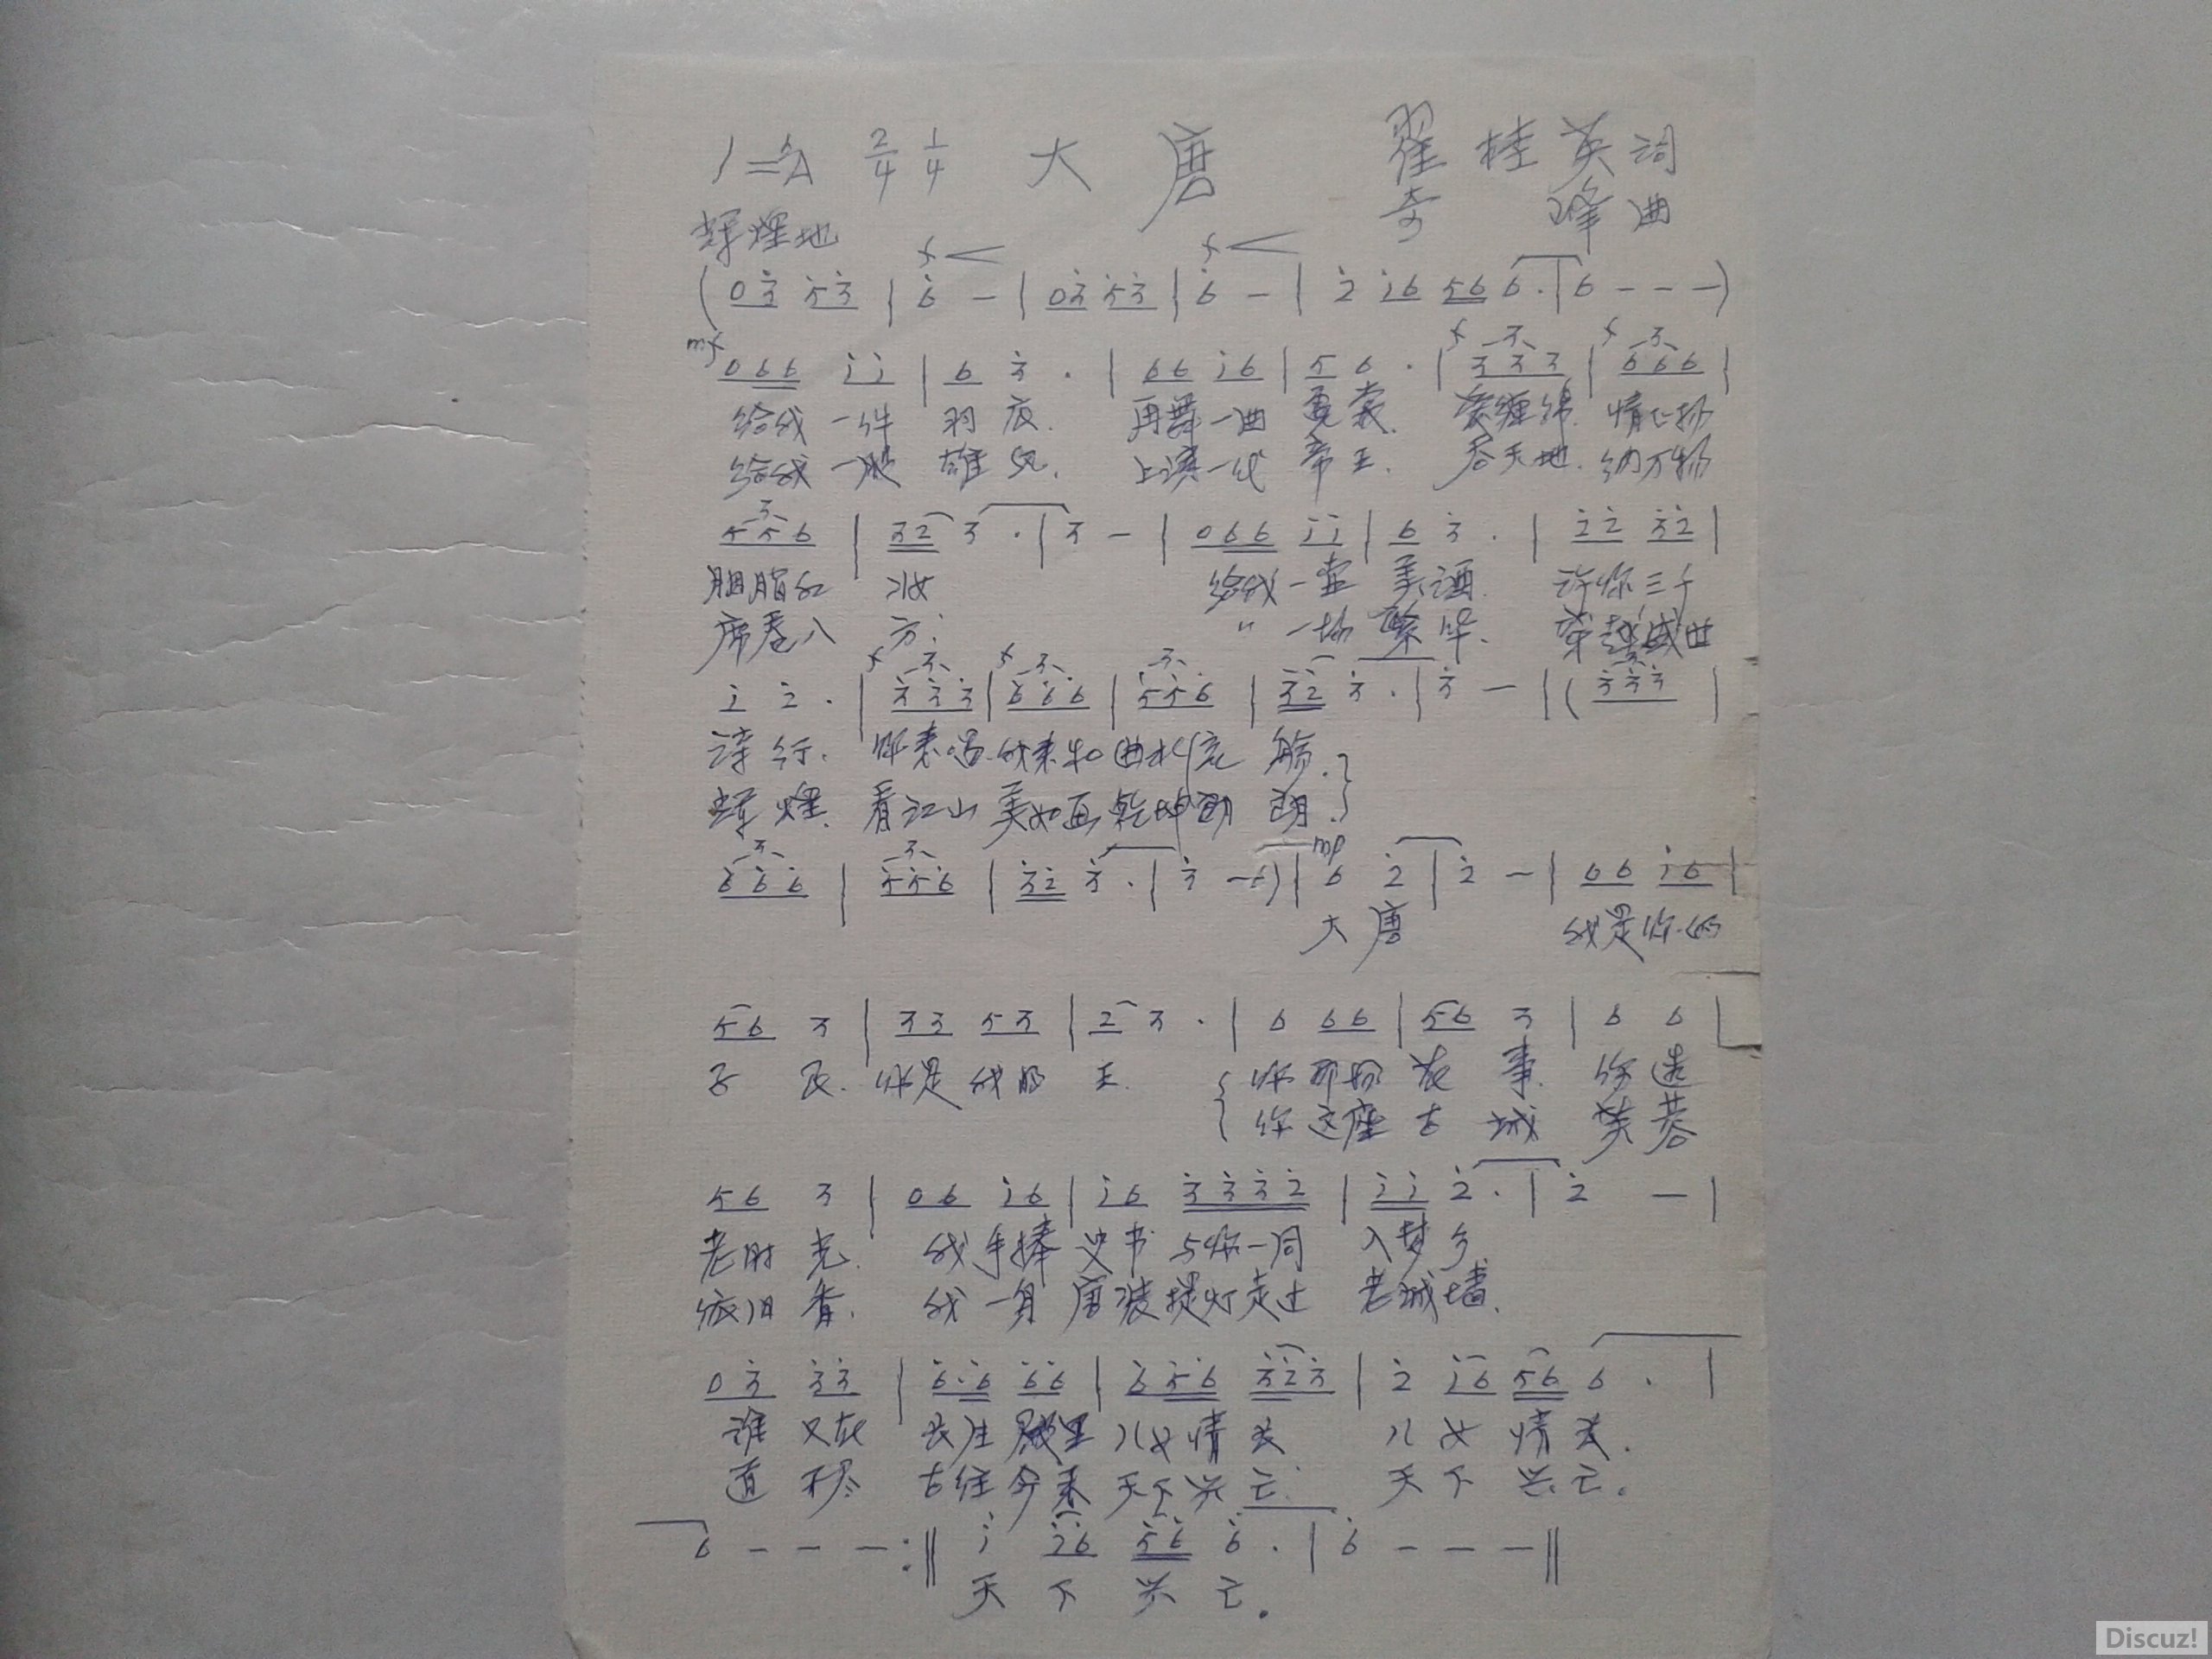 1=A 2/4 1/4 大 唐 翟桂英词
奇 峰 曲
辉煌地
f f
(0 3̇ 5̇3̇ | 6̇ - | 03̇ 5̇3̇ | 6̇ - | 2̇ i6 56 6. | 6 - - -)
mf f 3 f 3
066 i i | 6 3̇ . | 66 i6 | 5 6 . | 3 3 3 | 6 6 6 |
给我 一件 羽衣. 再舞一曲 霓裳. 缠绵. 情飞扬
给我 一股 雄风. 上演一代 帝王. 吞天地. 纳万物
3
5 5 6 | 32 3 . | 3 - | 066 i i | 6 3̇ . | 2̇2̇ 3̇2̇ |
胭脂红 妆 给我 一壶 美酒. 许你三千
席卷八 方. " 一场 繁华. 穿越盛世
f 3 f 3 3 3
i 2̇ . | 3̇ 3̇ 3̇ | 6̇ 6̇ 6̇ | 5̇ 5̇ 6̇ | 3̇2̇ 3̇ . | 3̇ - | ( 3̇ 3̇ 3̇ |
诗行. 你来唱 我来和 曲水流 觞.
辉煌. 看江山 美如画 乾坤朗 朗.
3 3 mp
6̇ 6̇ 6̇ | 5̇ 5̇ 6̇ | 3̇2̇ 3̇ . | 3̇ - ) | 6 2̇ | 2̇ - | 66 i6 |
大唐 我是你的
56 3 | 33 53 | 2 3 . | 6 66 | 56 3 | 6 6 |
子 民. 你是我的 王. 你那场 故事. 你遗
你这座 古城 芙蓉
56 3 | 06 i6 | i6 3̇3̇3̇2̇ | i i 2̇ . | 2̇ - |
老时光. 我手捧 史书 与你一同 入梦乡.
依旧香. 我一身 唐装提灯走过 老城墙.
0 3̇ 3̇3̇ | 6̇.6̇ 6̇6̇ | 6̇ 5̇6̇ 3̇2̇3̇ | 2̇ i6 56 6 . |
谁 又在 长生殿里 儿女情长 儿女情长.
道不尽 古往今来 天下兴亡. 天下兴亡.
6 - - - :‖ i 2̇6 5̇6̇ 6̇ . | 6̇ - - - ‖
天下兴亡.
Discuz!